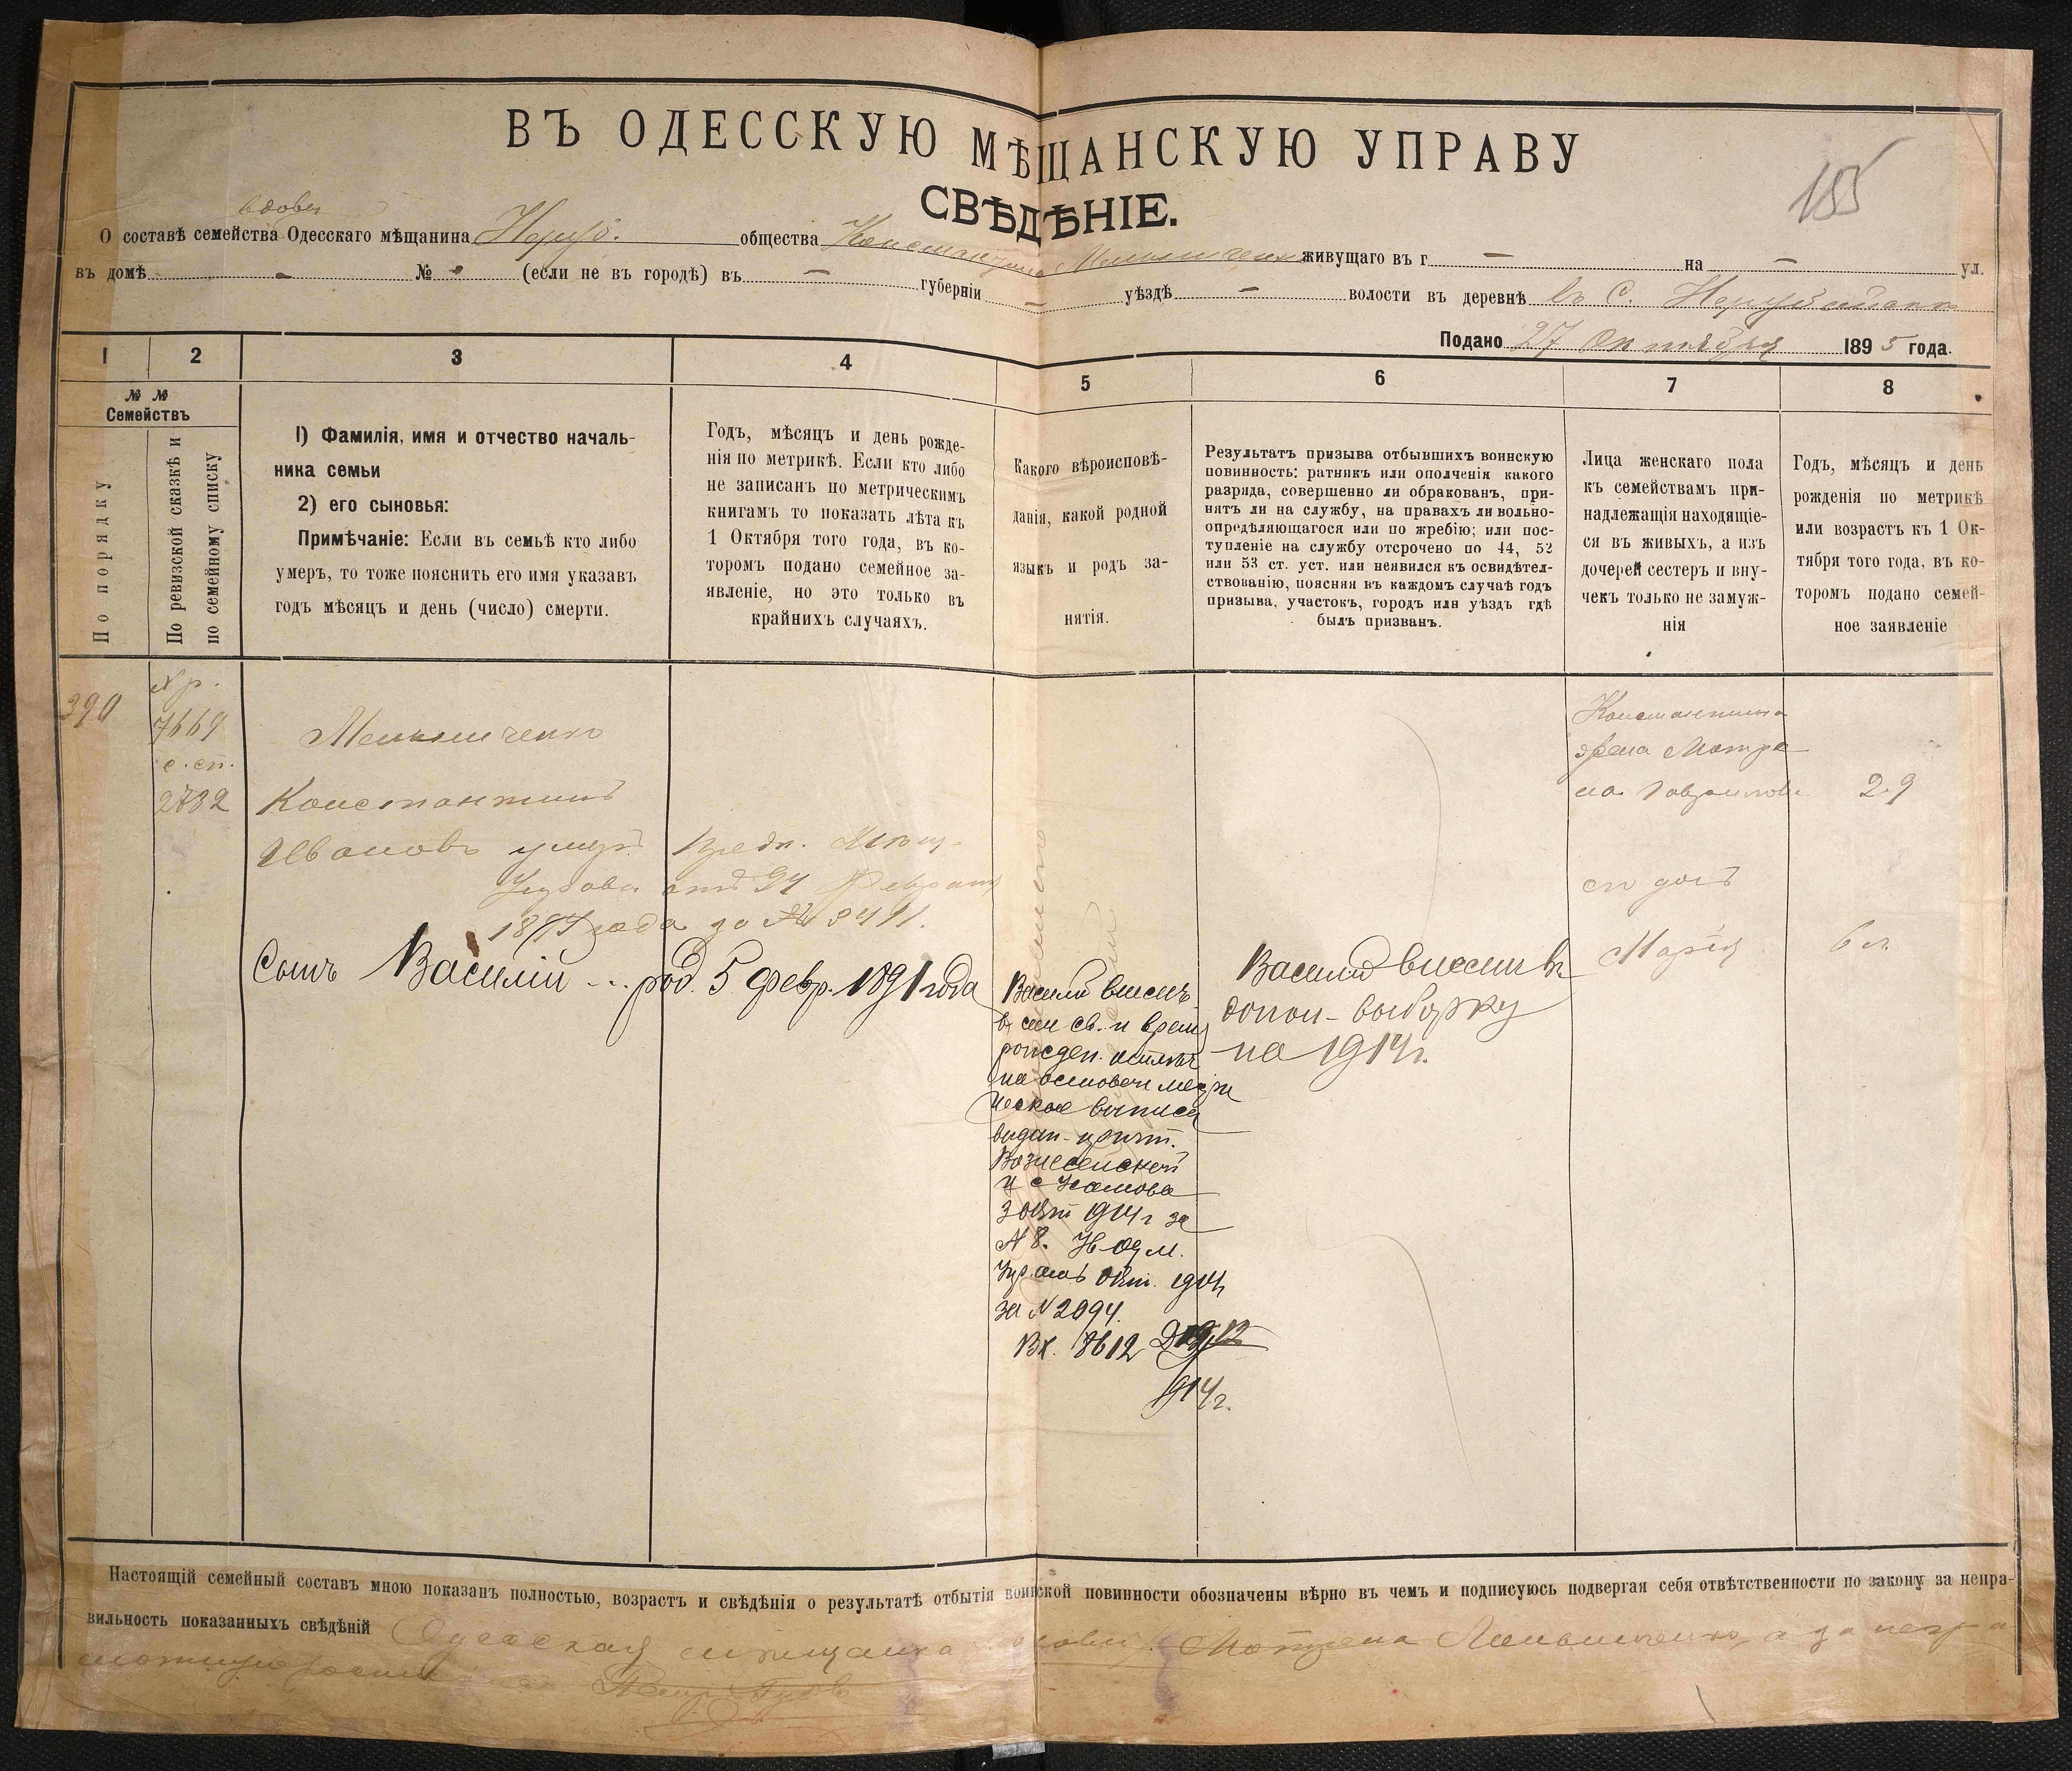 ВЪ ОДЕССКУЮ МѢЩАНСКУЮ УПРАВУ
СВѢДѢНІЕ.
155
вдовы
О составѣ семейства Одесскаго мѣщанина Неруб. общества Константина живущаго въ г. — на — ул.
въ домѣ - № - (если не въ городѣ) въ — губерніи — уѣздѣ — волости въ деревнѣ въ С.
Подано 27 Октября 1895 года.
1 2 3 4 5 6 7 8
№ № Семействъ
По порядку
По ревизской сказкѣ и
по семейному списку
1) Фамилія, имя и отчество началь-
ника семьи
2) его сыновья:
Примѣчаніе: Если въ семьѣ кто либо
умеръ, то тоже пояснить его имя указавъ
годъ мѣсяцъ и день (число) смерти.
Годъ, мѣсяцъ и день рожде-
нія по метрикѣ. Если кто либо
не записанъ по метрическимъ
книгамъ то показать лѣта къ
1 Октября того года, въ ко-
торомъ подано семейное за-
явленіе, но это только въ
крайнихъ случаяхъ.
Какого вѣроисповѣ-
данія, какой родной
языкъ и родъ за-
нятія.
Результатъ призыва отбывшихъ воинскую
повинность: ратникъ или ополченія какого
разряда, совершенно ли обракованъ, при-
нятъ ли на службу, на правахъ ли вольно-
опредѣляющагося или по жребію; или пос-
тупленіе на службу отсрочено по 44, 52
или 53 ст. уст. или неявился къ освидѣтел-
ствованію, поясняя въ каждомъ случаѣ годъ
призыва, участокъ, городъ или уѣздъ гдѣ
былъ призванъ.
Лица женскаго пола
къ семействамъ при-
надлежащія находящіе-
ся въ живыхъ, а изъ
дочерей сестеръ и вну-
чекъ только не замуж-
нія
Годъ, мѣсяцъ и день
рожденія по метрикѣ
или возрастъ къ 1 Ок-
тября того года, въ ко-
торомъ подано семей-
ное заявленіе
390
№ р.
7669
с. сп.
2782
Мельниченко
Константинъ
Ивановъ умеръ Предп. Мѣщ.
Управы отъ 24 Февраля
года за № 3411.
Сынъ Василій ... род. 5 февр. 1891 года
Василій внесенъ
в сем св. и время
рожден.
на основан метри
ческой выписи
выдан. причт.
Вознесенской
ц с
3 окт 1914 г за
№ 8.
Упр. окт. 1914
за № 2094.
Вх. 8612
1914 г.
Василій внесенъ въ
допол- выборку
на 1914 г.
Константина
жена Матре
на 29
Марія 6 л.
Настоящій семейный составъ мною показанъ полностью, возрастъ и свѣдѣнія о результатѣ отбытія воинской повинности обозначены вѣрно въ чемъ и подписуюсь подвергая себя отвѣтственности по закону за непра-
вильность показанныхъ свѣдѣній Одесская мѣщанка вдова Матрена Мельниченко, а за негра
мотную